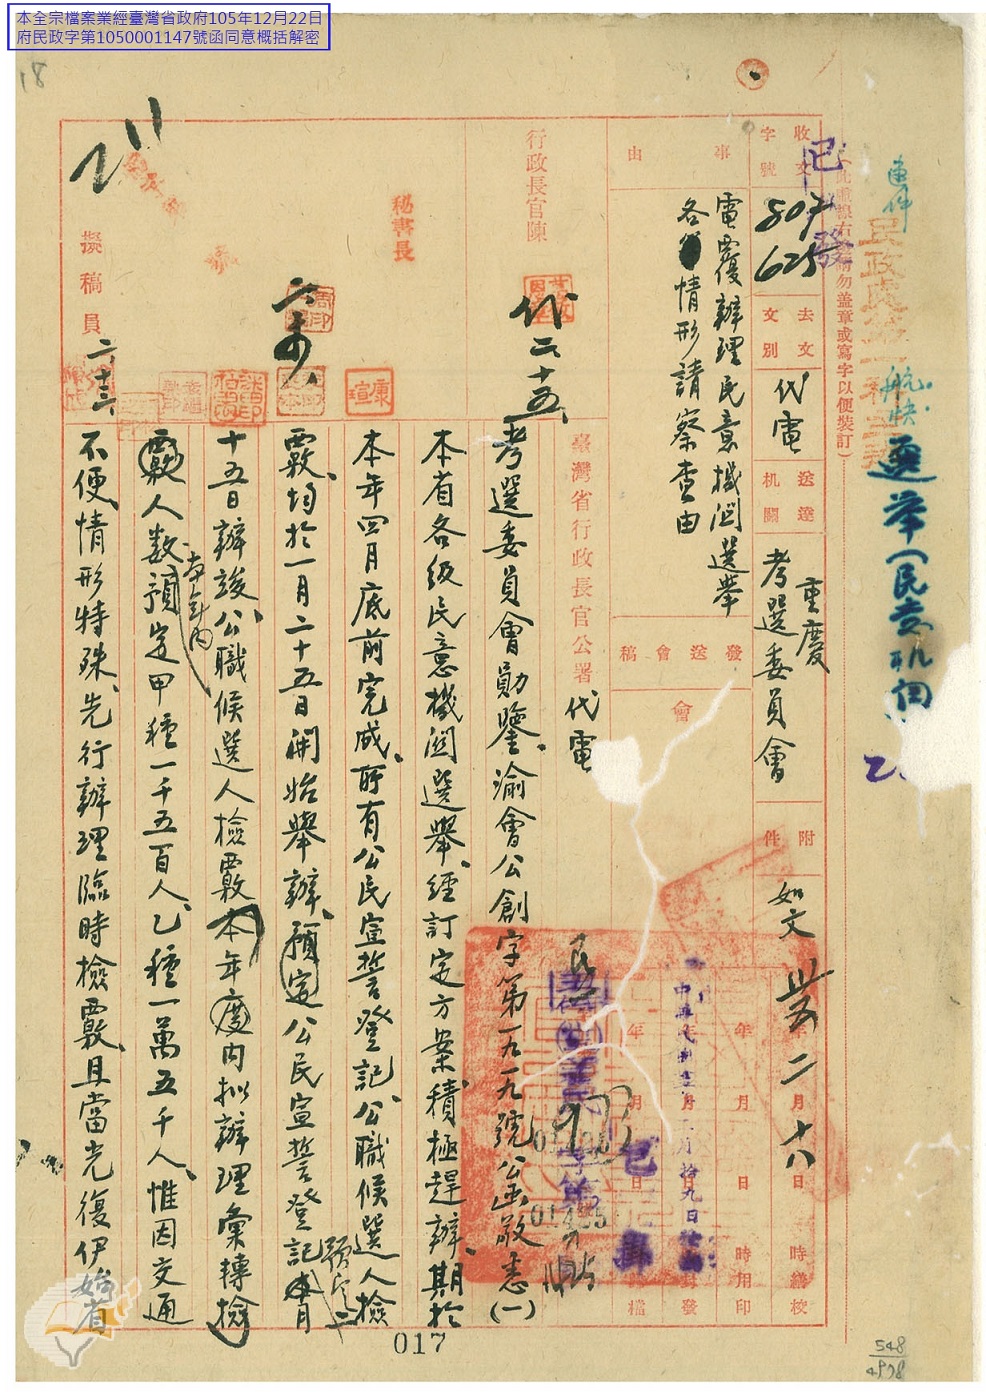 本全宗檔案業經臺灣省政府105年12月22日
府民政字第1050001147號函同意概括解密
18
速件
航快
選舉(民意机
收文
字號
807
625
去文
文別
代電
送達
机關
重慶
考選委員會
附
件
如文
卅五 二 十八
年 月 日 時繕校
年 月 日 時用印
已發
事
由
電覆辦理民意機関選舉
各情形請察查由
發送會稿
會
中華民國卅五年二月拾九日
行政長官陳
代 二十五
秘書長
擬稿員
二、十三
臺灣省行政長官公署
代電
考選委員會勛鑒、渝會公創字第一九一九號公函敬悉(一)
本省各級民意機関選舉、經訂定方案、積極趕辦、期於
本年四月底前完成、所有公民宣誓登記、公職候選人檢
覈、均於一月二十五日開始舉辦、預定公民宣誓登記本月
預定二
十五日辦竣、公職候選人檢覈本年度內拟辦理彙轉檢
本年內
覈人数預定甲種一千五百人、乙種一萬五千人、惟因交通
不便、情形特殊、先行辦理臨時檢覈、且當光復伊始省
017
548
4978